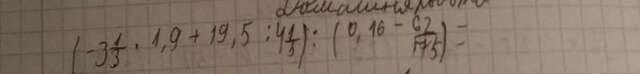 Домашняя работа
(-3 1/3 · 1,9 + 19,5 : 4 1/3) : (0,16 - 62/175) =